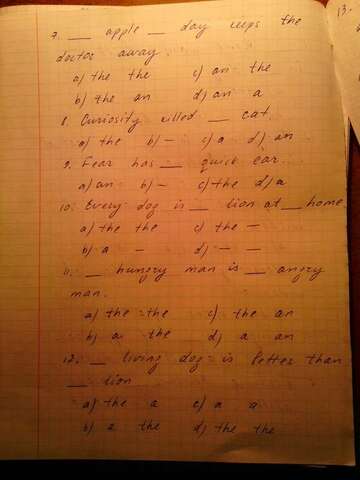 7. __ apple __ day keeps the
doctor away.
a) the the c) an the
b) the an d) an a
8. Curiosity killed __ cat.
a) the b) - c) a d) an
9. Fear has __ quick ear.
a) an b) - c) the d) a
10. Every dog is __ lion at __ home
a) the the c) the -
b) a - d) - -
11. __ hungry man is __ angry
man.
a) the the c) the an
b) a the d) a an
12. __ living dog is better than
__ lion
a) the a c) a a
b) a the d) the the
13.